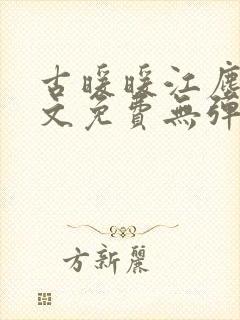 古暖暖江塵
文免費無彈
方新麗